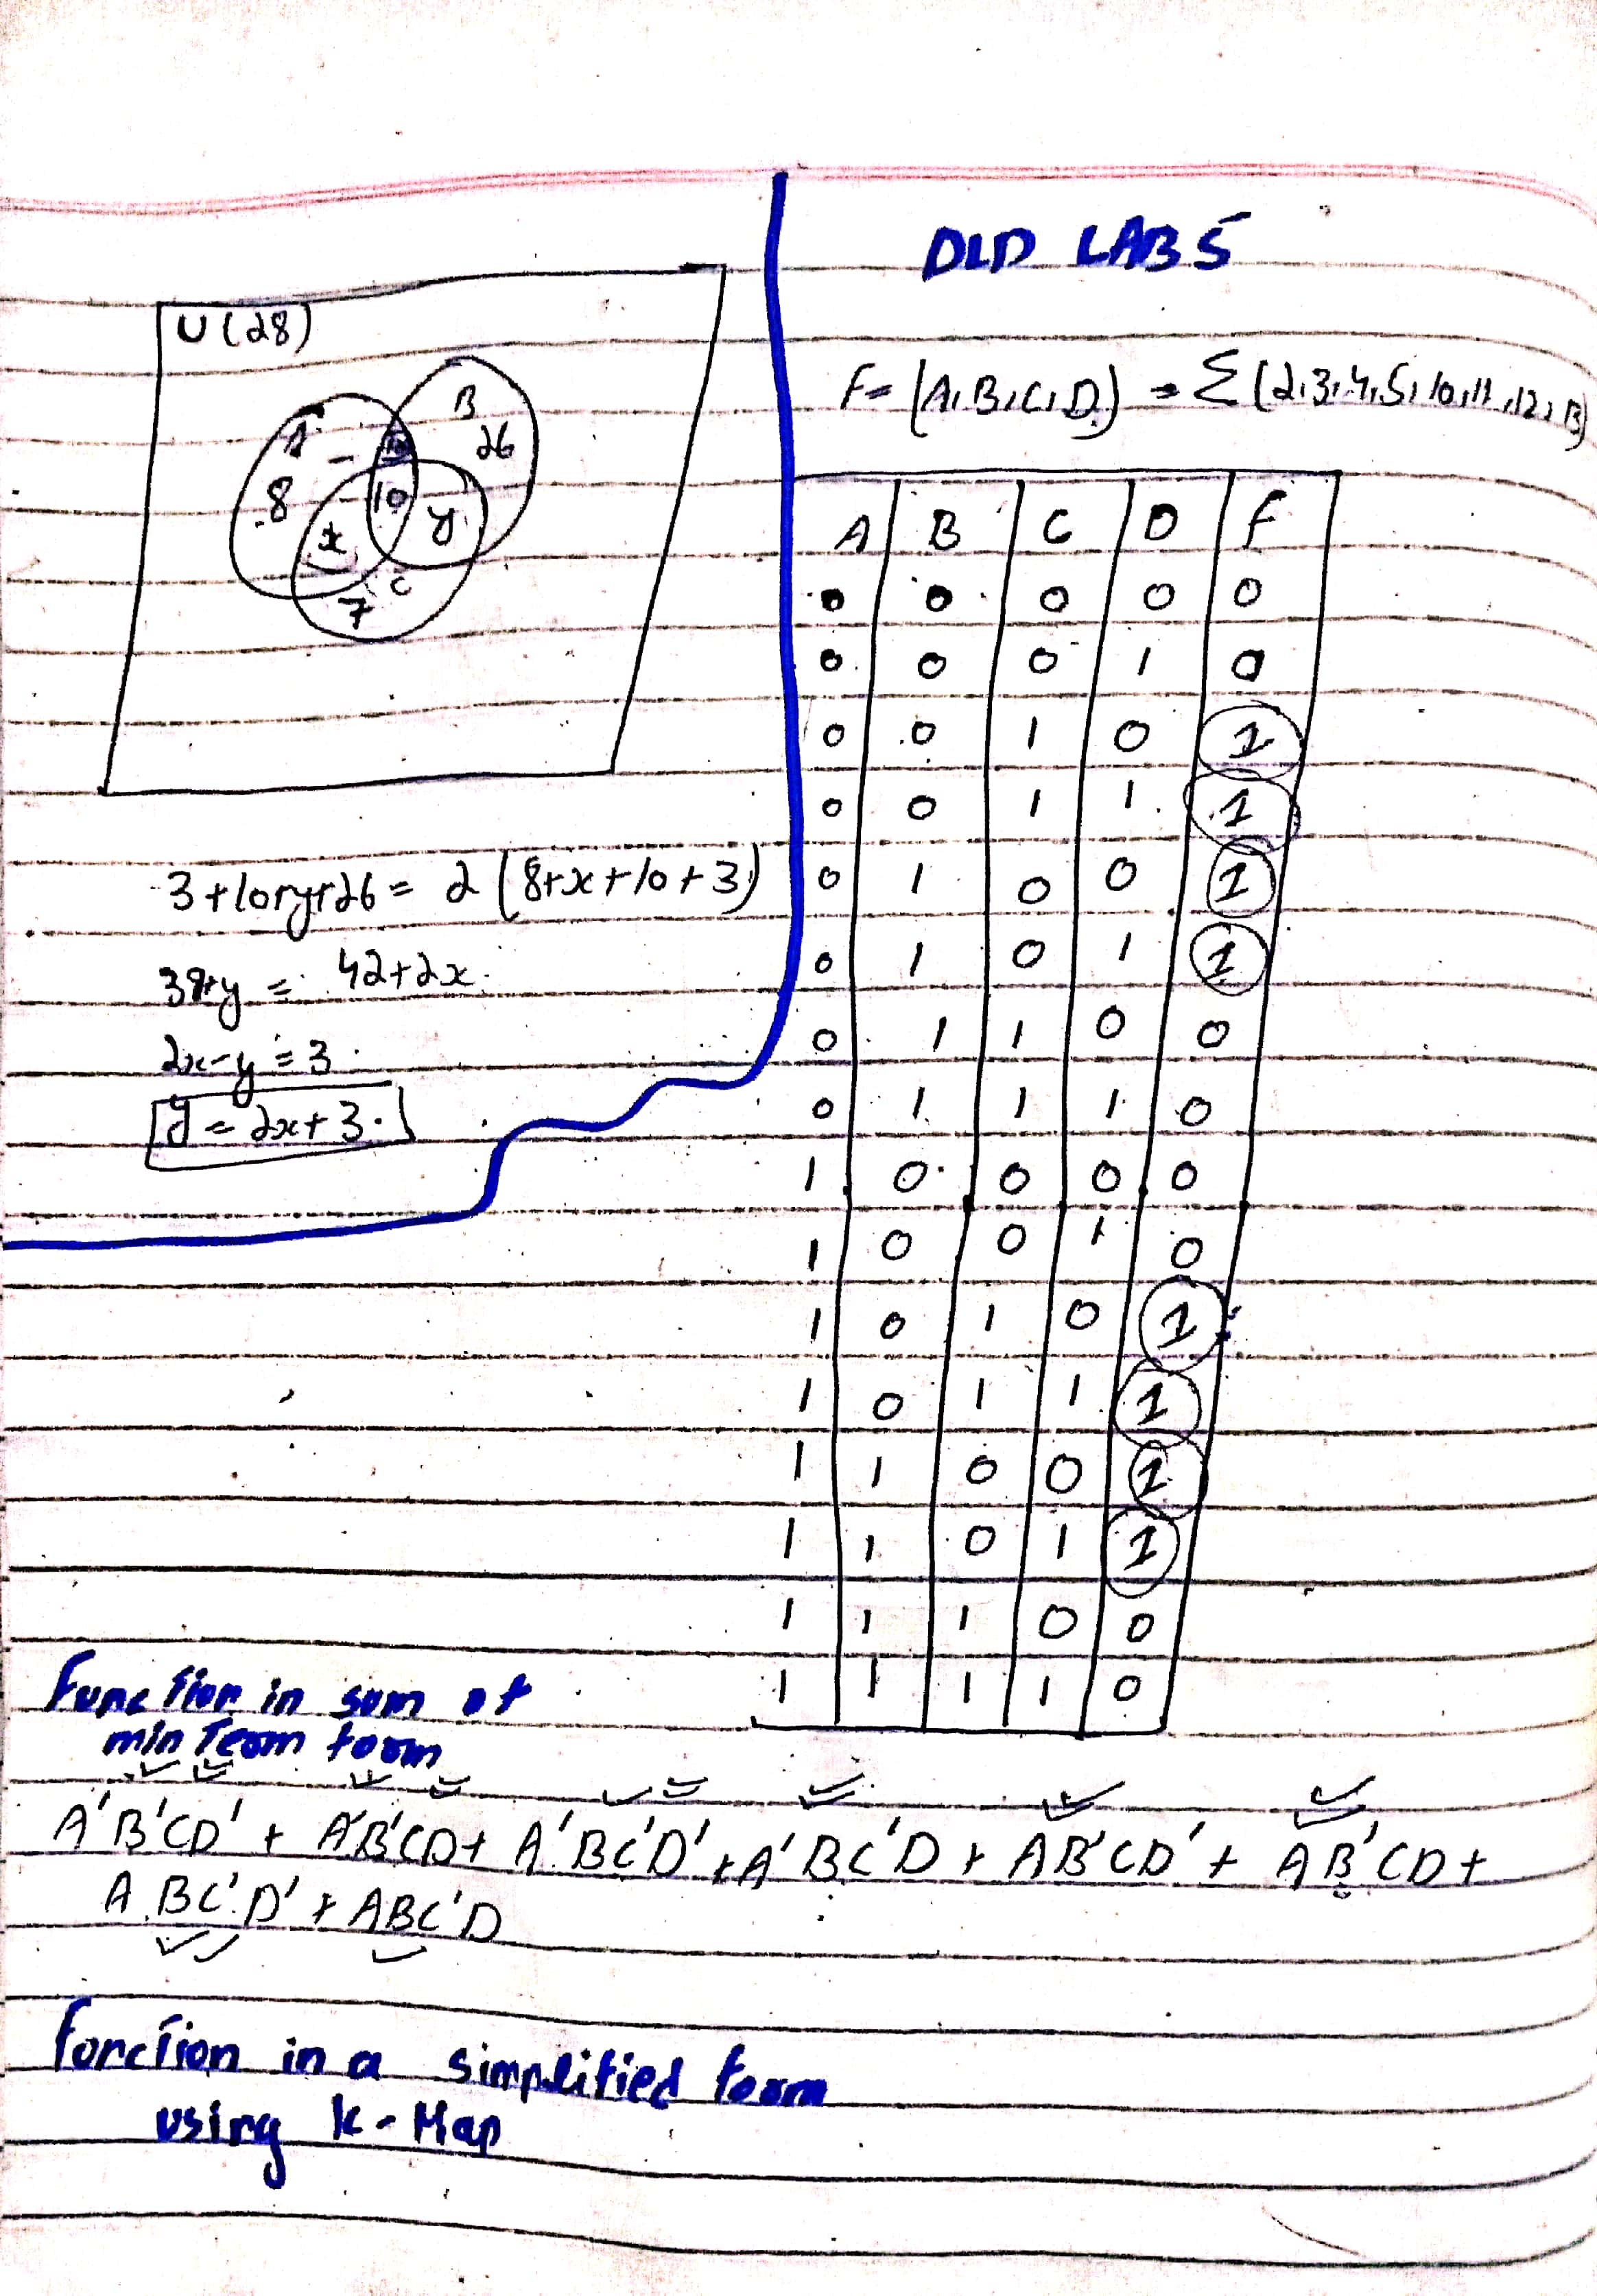 U(28)
A B
10 26
8 10 y
x
C
7
3+10+y+26 = 2(8+x+10+3)
39+y = 42+2x
2x-y = 3
y = 2x+3
DLD LAB 5
F= (A,B,C,D) = Σ(2,3,4,5,10,11,12,13)
A B C D F
0 0 0 0 0
0 0 0 1 0
0 0 1 0 1
0 0 1 1 1
0 1 0 0 1
0 1 0 1 1
0 1 1 0 0
0 1 1 1 0
1 0 0 0 0
1 0 0 1 0
1 0 1 0 1
1 0 1 1 1
1 1 0 0 1
1 1 0 1 1
1 1 1 0 0
1 1 1 1 0
Function in sum of
min Term form
A'B'CD' + A'B'CD + A'BC'D' + A'BC'D + AB'CD' + AB'CD +
ABC'D' + ABC'D
Function in a simplified form
using K-Map